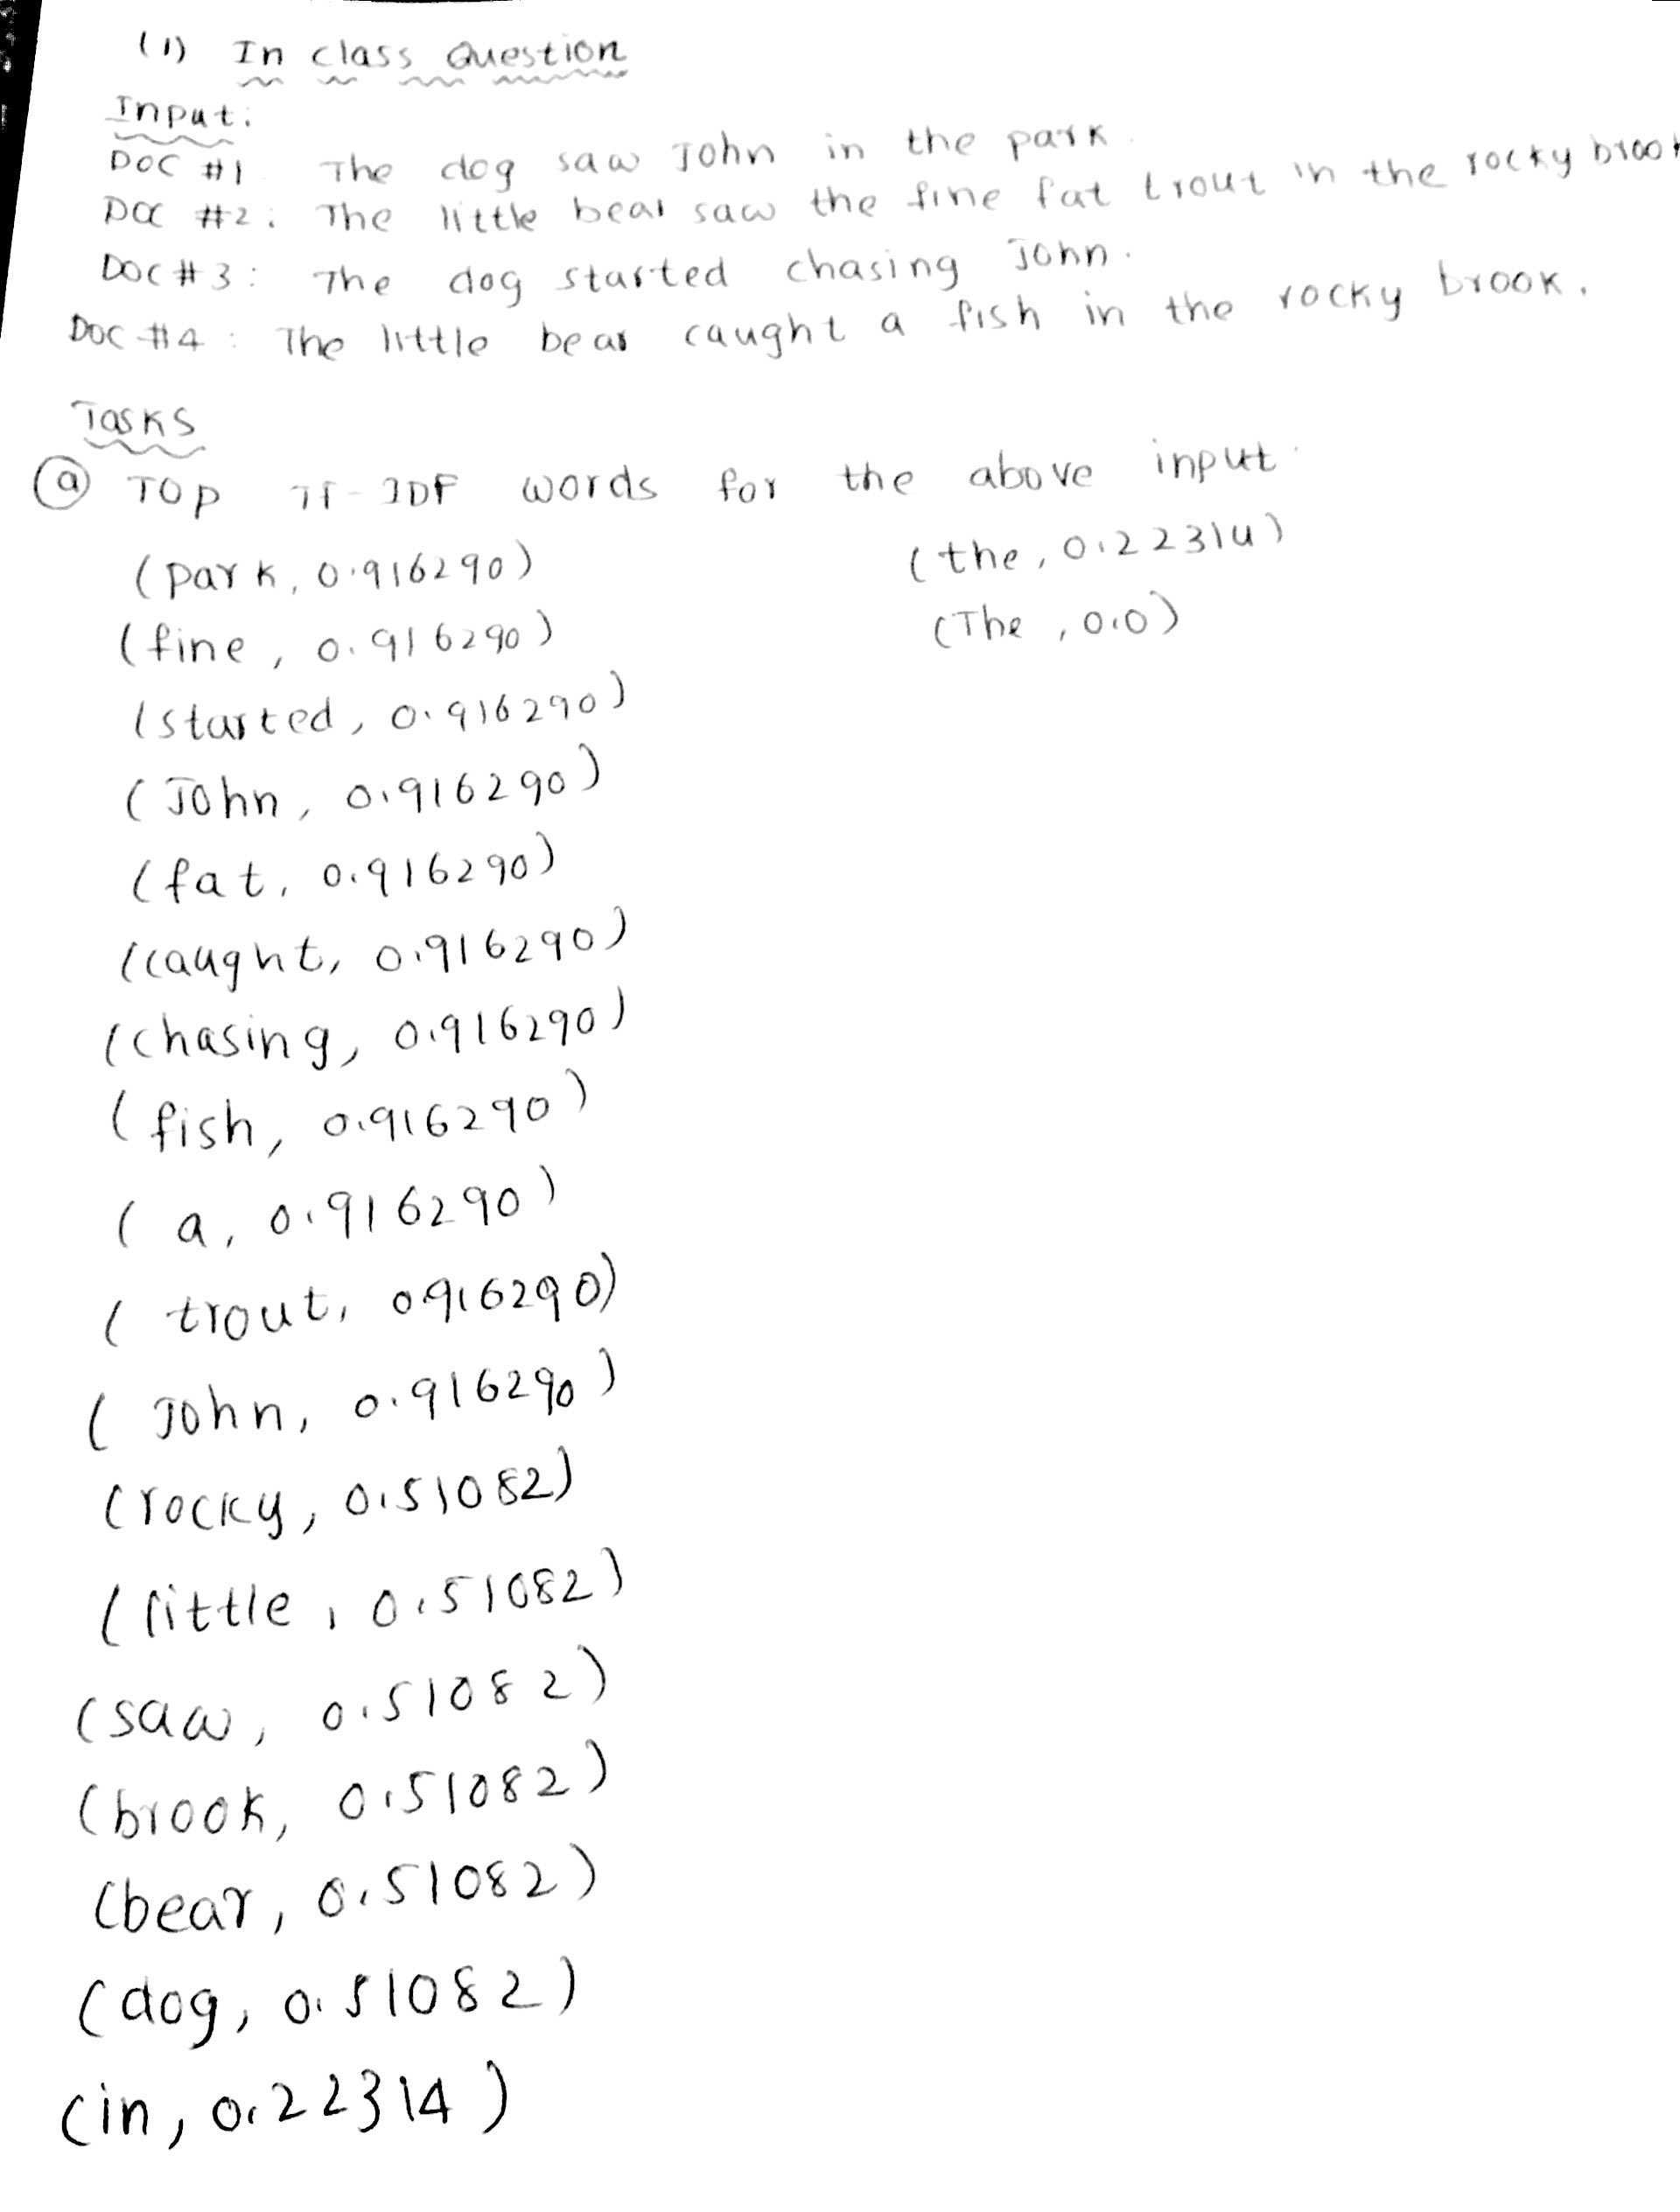 (1) In class Question
Input:
DOC #1 The dog saw John in the park.
DOC #2: The little bear saw the fine fat trout in the rocky brook
DOC #3: The dog started chasing John.
DOC #4: The little bear caught a fish in the rocky brook.
Tasks
(a) TOP TF-IDF words for the above input.
(park, 0.916290)
(fine, 0.916290)
(started, 0.916290)
(John, 0.916290)
(fat, 0.916290)
(caught, 0.916290)
(chasing, 0.916290)
(fish, 0.916290)
(a, 0.916290)
(trout, 0.916290)
(John, 0.916290)
(rocky, 0.51082)
(little, 0.51082)
(saw, 0.51082)
(brook, 0.51082)
(bear, 0.51082)
(dog, 0.51082)
(in, 0.22314)
(the, 0.22314)
(The, 0.0)